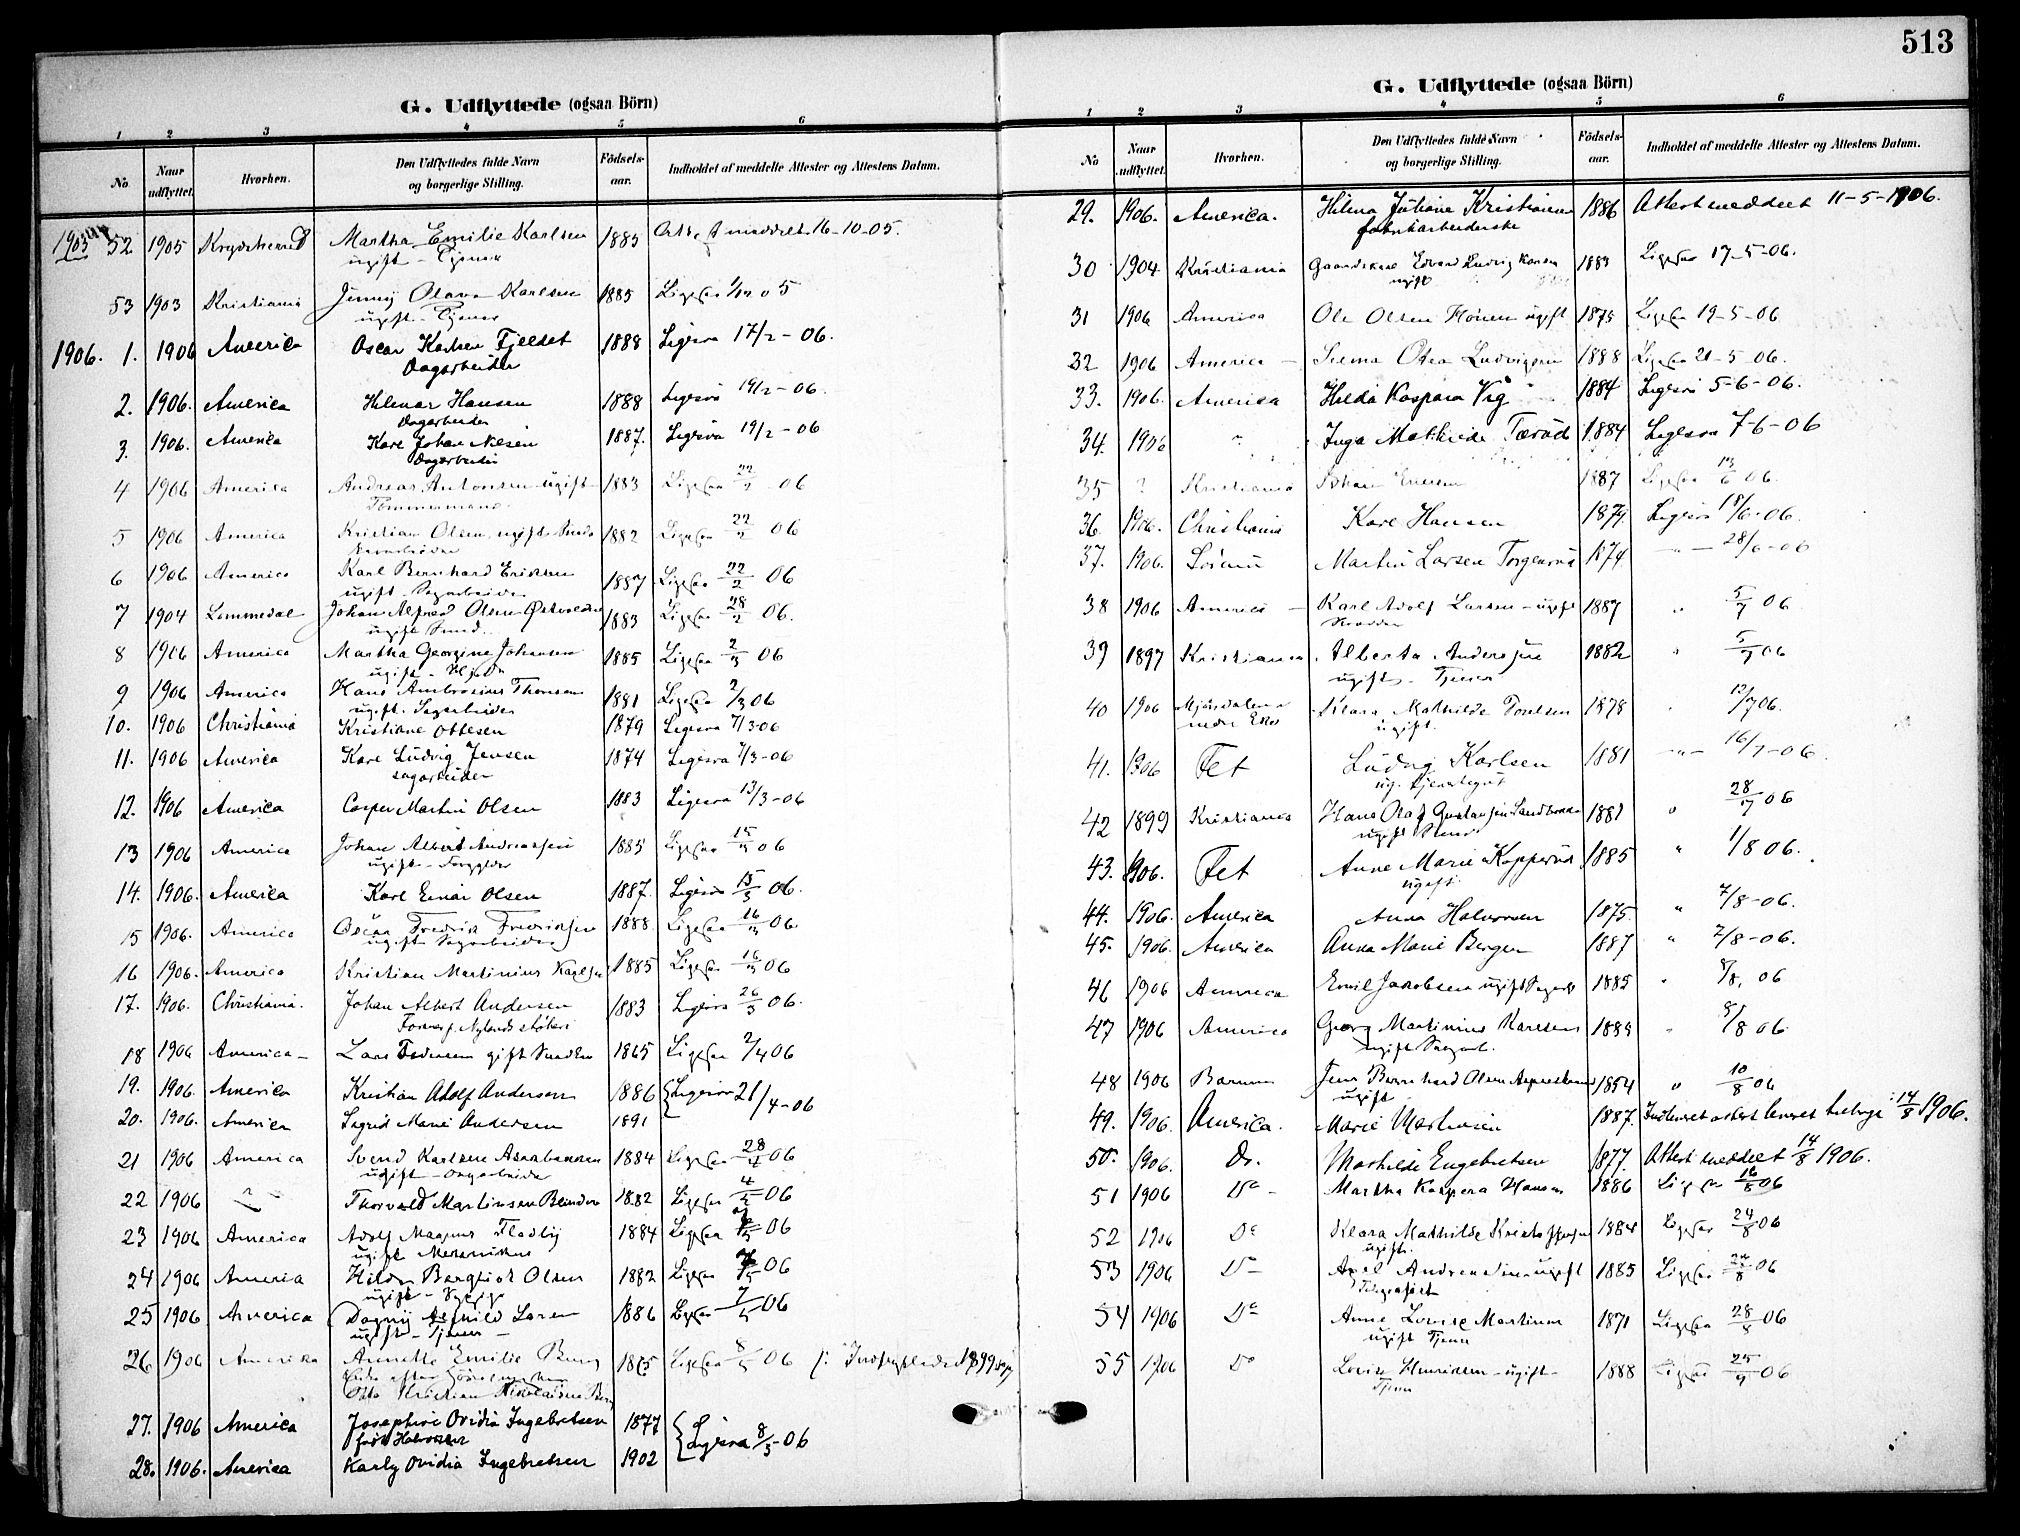 513
G. Udflyttede (ogsaa Börn)
1 2 3 4 5 6
No. Naar udflyttet. Hvorhen. Den Udflyttedes fulde Navn og borgerlige Stilling. Fødselsaar. Indholdet af meddelte Attester og Attestens Datum.
1905 52 1905 Krydsherred Martha Emilie Karlsen 1885 Attest meddelt 16-10-05.
ugift - Tjener
53 1903 Kristiania Jenny Olava Karlsen 1885 Ligesaa 05
ugift - Tjener
1906. 1. 1906 America Oscar Karlsen Fjeldet 1888 Ligesaa 17/2-06.
Dagarbeider
2. 1906. America Hilmar Hansen 1888 Ligesaa 19/2-06.
Dagarbeider
3. 1906. America Karl Johan Nilsen 1887. Ligesaa 19/2-06
Dagarbeider
4 1906 America Andreas Antonsen ugift 1883 Ligesaa 22/2 06
Tømmermand
5 1906 America Kristian Olsen, ugift 1882 Ligesaa 22/2 06
6 1906 America Karl Bernhard Eriksen 1887 Ligesaa 22/2 06
ugift - Sagarbeider
7 1904 Lommedal Johan Alfred Olsen 1883 Ligesaa 28/2 06.
ugift Smed.
8 1906 America Martha Georgine Johansen 1885 Ligesaa 2/3 06
ugift -
9 1906 America Hans Ambrosius Thomsen 1881 Ligesaa 2/3 06
ugift. Sagarbeider
10. 1906 Christiania Kristiane Ottesen 1879 Ligesaa 7/3-06
11. 1906 America Karl Ludvig Jensen 1874 Ligesaa 7/3-06
sagarbeider
12. 1906 America Casper Martin Olsen 1883 Ligesaa 13/3-06
13 1906 America Johan Albert Andreassen 1885 Ligesaa 15/3 06
ugift -
14. 1906. America Karl Einar Olsen 1887. Ligesaa 15/3 06.
15 1906. America Oscar Fredrik Fredriksen 1888 Ligesaa 16/3 06.
ugift Sagarbeider
16 1906. America Kristian Martinius Karlsen 1885 Ligesaa 16/3 06
17. 1906. Christiania. Johan Albert Andersen 1883 Ligesaa 26/3 06.
Former f. Nylands støberi
18 1906 America - Lars Pedersen gift 1865 Ligesaa 2/4 06
19. 1906. America Kristian Adolf Andersen 1886 Ligesaa 21/4-06
20. 1906. America Sigrid Marie Andersen 1891
21 1906 America Svend Karlsen 1884 Ligesaa 28/4 06
ugift - Dagarbeider
22 1906 Thorvald Martinsen 1882 Ligesaa 4/5 06
23 1906 America Adolf Magnus Fladby 1884 Ligesaa 06
ugift Mekanikus
24 1906 America Hilda Bergliot Olsen 1882 Ligesaa 7/5 06
ugift - Sypige
25 1906 America Dagny Asthild Loren 1886 Ligesaa 7/5 06
ugift - Tjener -
26 1906 Amerika Annette Emilie Berg 1865 Ligesaa 8/5 06
Enke efter
Otto Kristian Nikolaisen Berg
27. 1906 America Josephine Ovidia Ingebretsen 1877 Ligesaa 8/5-06
født Halvorsen
28. 1906. America Karly Ovidia Ingebretsen 1902
G. Udflyttede (ogsaa Börn)
1 2 3 4 5 6
No Naar udflyttet. Hvorhen. Den Udflyttedes fulde Navn og borgerlige Stilling. Fødselsaar. Indholdet af meddelte Attester og Attestens Datum.
29. 1906. America. Hilma Juliane Kristiansen 1886 Attest meddelt 11-5-1906.
fabrikarbeiderske
30 1904 Kristiania Gaardskarl Edvard Ludvig Hansen 1883 Ligesaa 17-5-06.
ugift
31 1906 America Ole Olsen Hønen ugift 1875 Ligesaa 19-5-06
32 1906 America - Selma Otea Ludvigsen 1888 Ligesaa 21-5-06.
33. 1906. America Hilda Kaspara Vig 1884 Ligesaa 5-6-06.
34. 1906 " Inga Mathilde Tærud 1884 Ligesaa 7-6-06
35 ? Kristiania Johan 1887 Ligesaa 13/6 06.
36. 1906. Christiania Karl Hansen 1879 Ligesaa 18/6-06.
37. 1906. Sørum Martin Larsen Torgersrud 1874 -"- 28/6-06
38 1906 America - Karl Adolf Larsen - ugift 1887 " 5/7 06
39 1897 Kristiania Alberta Andersen 1882 " 5/7 06
ugift - Tjener
40 1906 Mjøndalen nedre Eker Klara Mathilde 1878 " 12/7 06.
ugift.
41. 1906 Fet Ludvig Karlsen 1881 -"- 16/7-06.
ug. tjenestegut
42 1899 Kristiania Hans Olaf Gustavsen Sandbakken 1881 " 28/7 06
ugift
43. 1906. Fet Anne Marie Kopperud 1885 " 1/8 06.
ugift
44. 1906. America Anna Halvorsen 1875. " 7/8-06.
45. 1906. America Anna Marie Bergen 1887 " 7/8-06.
46 1906 America Emil Jacobsen ugift Sagarb 1885 " 8/8. 06
47 1906 America Georg Martinius Karlsen 1883 " 9/8 06
ugift Sagarb.
48 1906 Bærum Jens Bernhard Olsen 1854 " 10/8 06
ugift
49. 1906. America. Marie Mathisen 1887. 14/8 1906.
50. 1906. Do. Mathilde Engebretsen 1877. Attest meddelt 14/8 1906.
51 1906 Do - Martha Kaspara Hansen 1886 Ligesaa 16/8 06
52 1906 Do Klara Mathilde Kristoffersen 1884 Ligesaa 24/8 06
ugift.
53 1906 Do Axel Andreassen - ugift 1885 Ligesaa 06
Telegrafist
54 1906 Do Anne Lovise Martinsen 1871 Ligesaa 28/8 06
ugift Tjener
55 1906 Do Lovise Henriksen - ugift - 1888 Ligesaa 25/9 06
Tjener